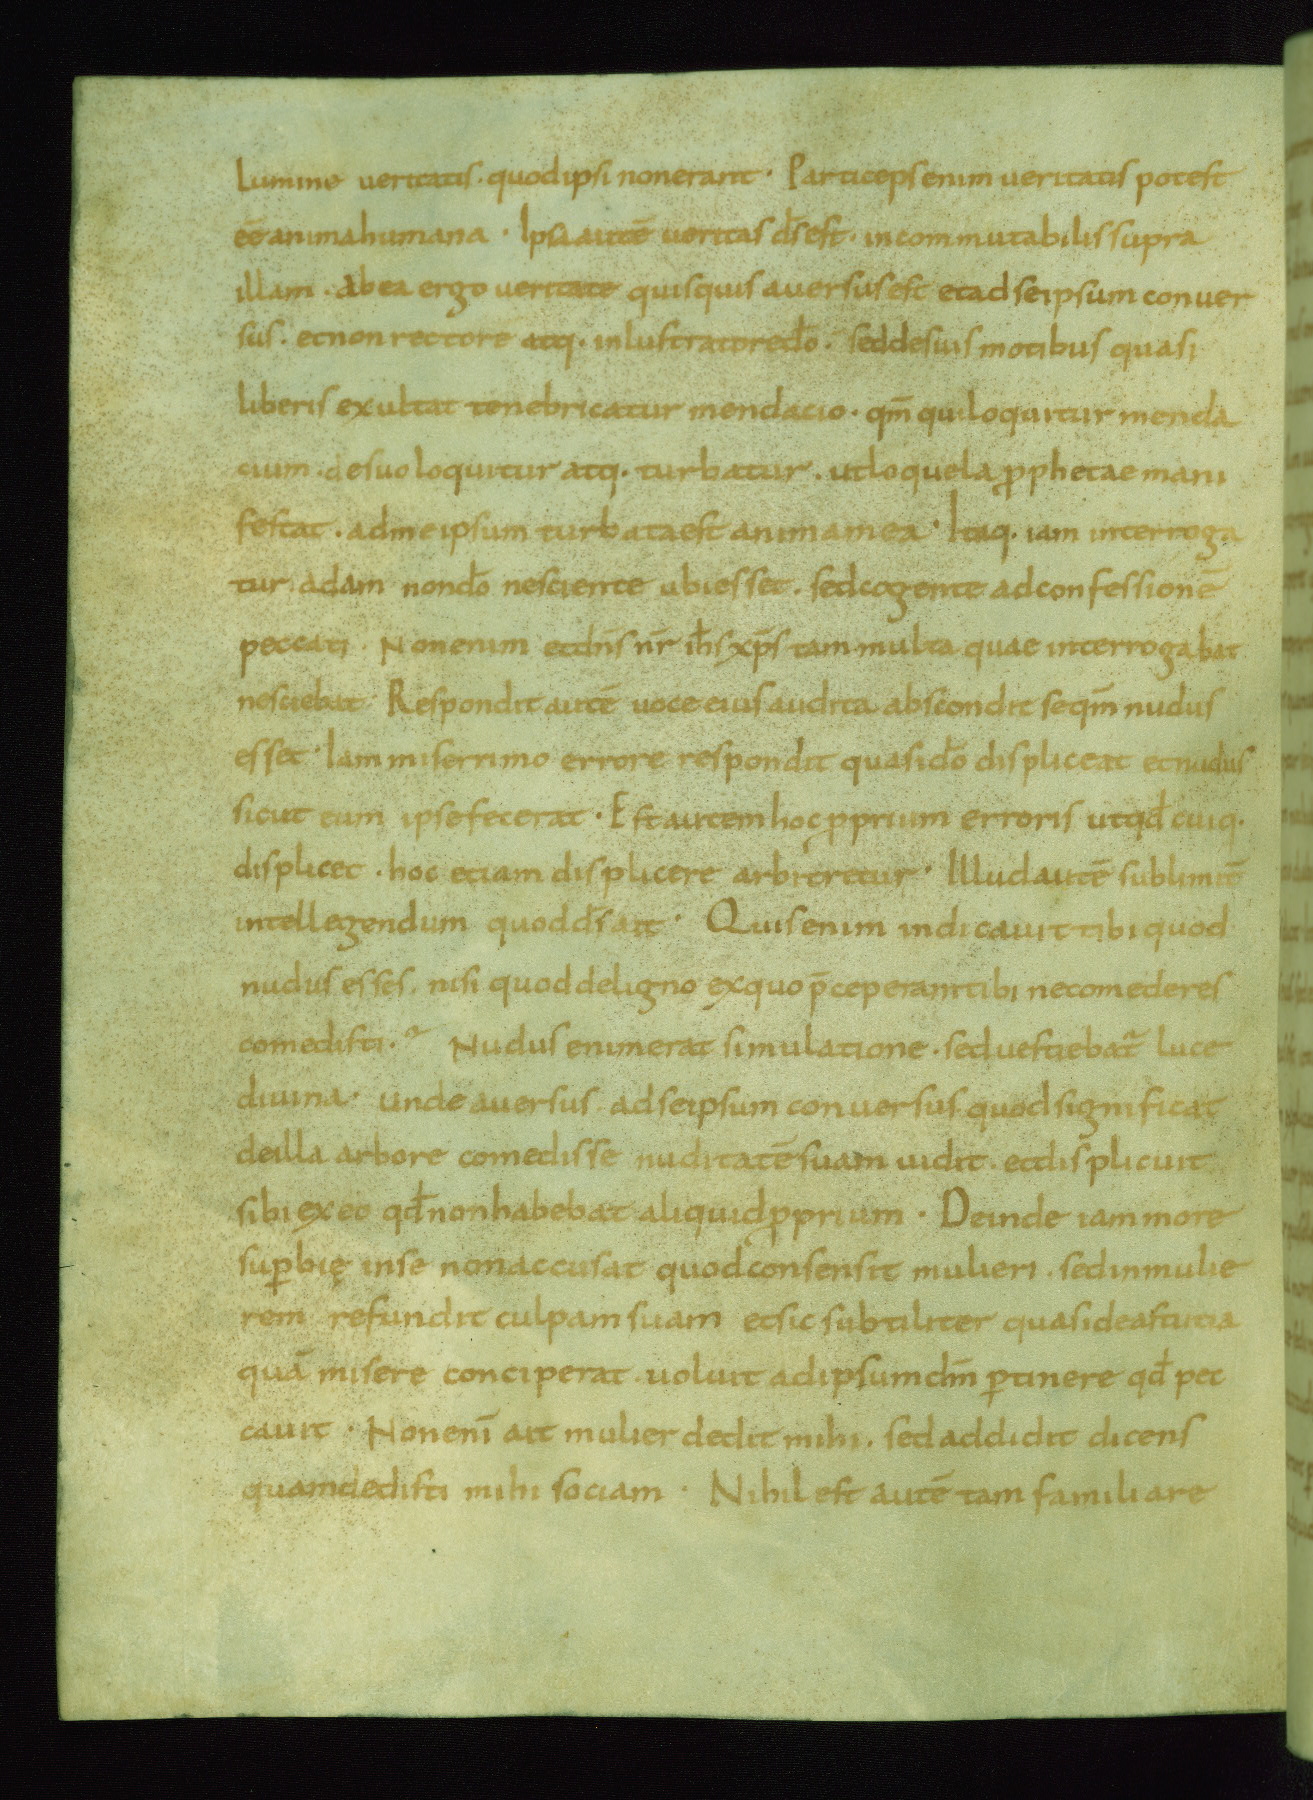 Lumine ueritatis · quod ipsi non erant · Particeps enim ueritatis potest
eē anima humana · Ipsa autē ueritas d̄s est · incommutabilis supra
illam · ab ea ergo ueritate quisquis auersus est et ad seipsum conuer
sus · et non rectore atq· inlustratore dō · sed de suis motibus quasi
liberis exultat tenebricatur mendacio · qm̄ qui loquitur menda
cium · de suo loquitur atq· turbatur · ut loquela ꝓphetae mani
festat · ad me ipsum turbata est anima mea · Itaq· iam interroga
tur adam non dō nesciente ubi esset · sed cogente ad confessionē
peccati · Non enim et dn̄s nr̄ ih̄s xp̄s tam multa quae interrogabat
nesciebat · Respondit autē uoce eius audita abscondit se qm̄ nudus
esset · Iam miserrimo errore respondit quasi dō displiceat et nudus
sicut eum ipse fecerat · Est autem hoc ꝓprium erroris ut qd̄ cuiq·
displicet · hoc etiam displicere arbitretur · Illud autē sublimit̄
intellegendum quod d̄s ait · Quis enim indicauit tibi quod
nudus esses · nisi quod de ligno ex quo p̄ceperam tibi ne comederes
comedisti · Nudus enim erat simulatione · sed uestiebat̄ luce
diuina · unde auersus ad seipsum conuersus quod significat
de illa arbore comedisse nuditatē suam uidit · et displicuit
sibi ex eo qd̄ non habebat aliquid ꝓprium · Deinde iam more
suꝑbię in se non accusat quod consensit mulieri · sed in mulie
rem refundit culpam suam et sic subtiliter quasi de astutia
quā misere conciperat · uoluit ad ipsum dm̄ ꝑtinere qd̄ pec
cauit · Non enī ait mulier dedit mihi · sed addidit dicens
quam dedisti mihi sociam · Nihil est autē tam familiare